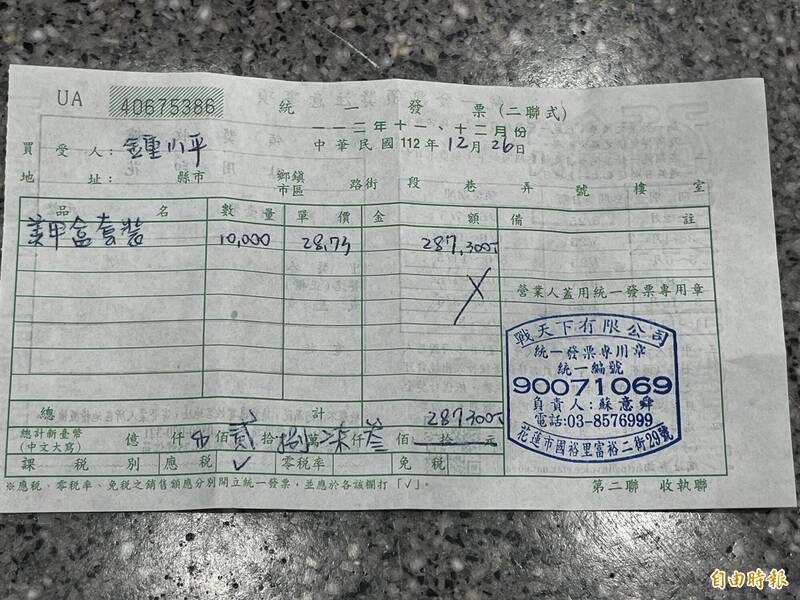 UA 40675386
統一發票(二聯式)
一一二年十一、十二月份
買受人:鍾小平 中華民國112年12月26日
地址: 縣市 鄉鎮市區 路街 段 巷 弄 號 樓 室
品名 數量 單價 金額 備註
美甲盒套裝 10,000 28.73 287,300元
營業人蓋用統一發票專用章
戰天下有限公司
統一發票專用章
統一編號
90071069
負責人:蘇意舜
電話:03-8576999
花蓮市國裕里富裕二街29號
總計 287300元
總計新臺幣(中文大寫) 億 仟 佰 貳 拾 捌 萬 柒 仟 叁 佰 拾 元
課稅別 應稅 ✓ 零稅率 免稅
※應稅、零稅率、免稅之銷售額應分別開立統一發票,並應於各該欄打「√」。
第二聯 收執聯
自由時報